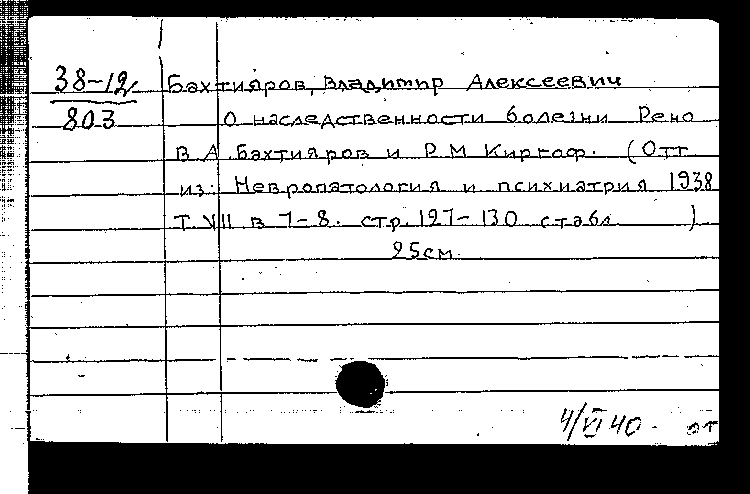 38-12/803
Бахтияров, Владимир Алексеевич
О наследственности болезни Рено
В.А. Бахтияров и Р.М. Киркоф. (Отт
из: Невропатология и психиатрия 1938
Т. VII в 7-8. стр. 127-130 с табл )
25см.
4/VI 40. от